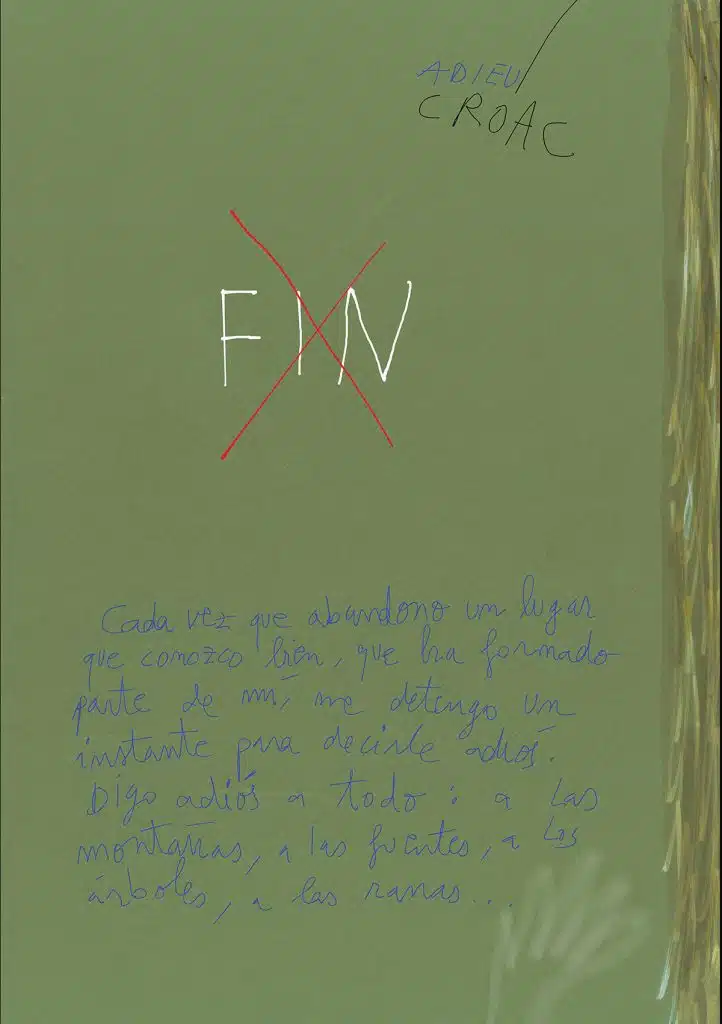 ADIEU
CROAC
FIN
Cada vez que abandono un lugar
que conozco bien, que ha formado
parte de mí, me detengo un
instante para decirle adiós.
Digo adiós a todo: a las
montañas, a las fuentes, a los
árboles, a las ranas...